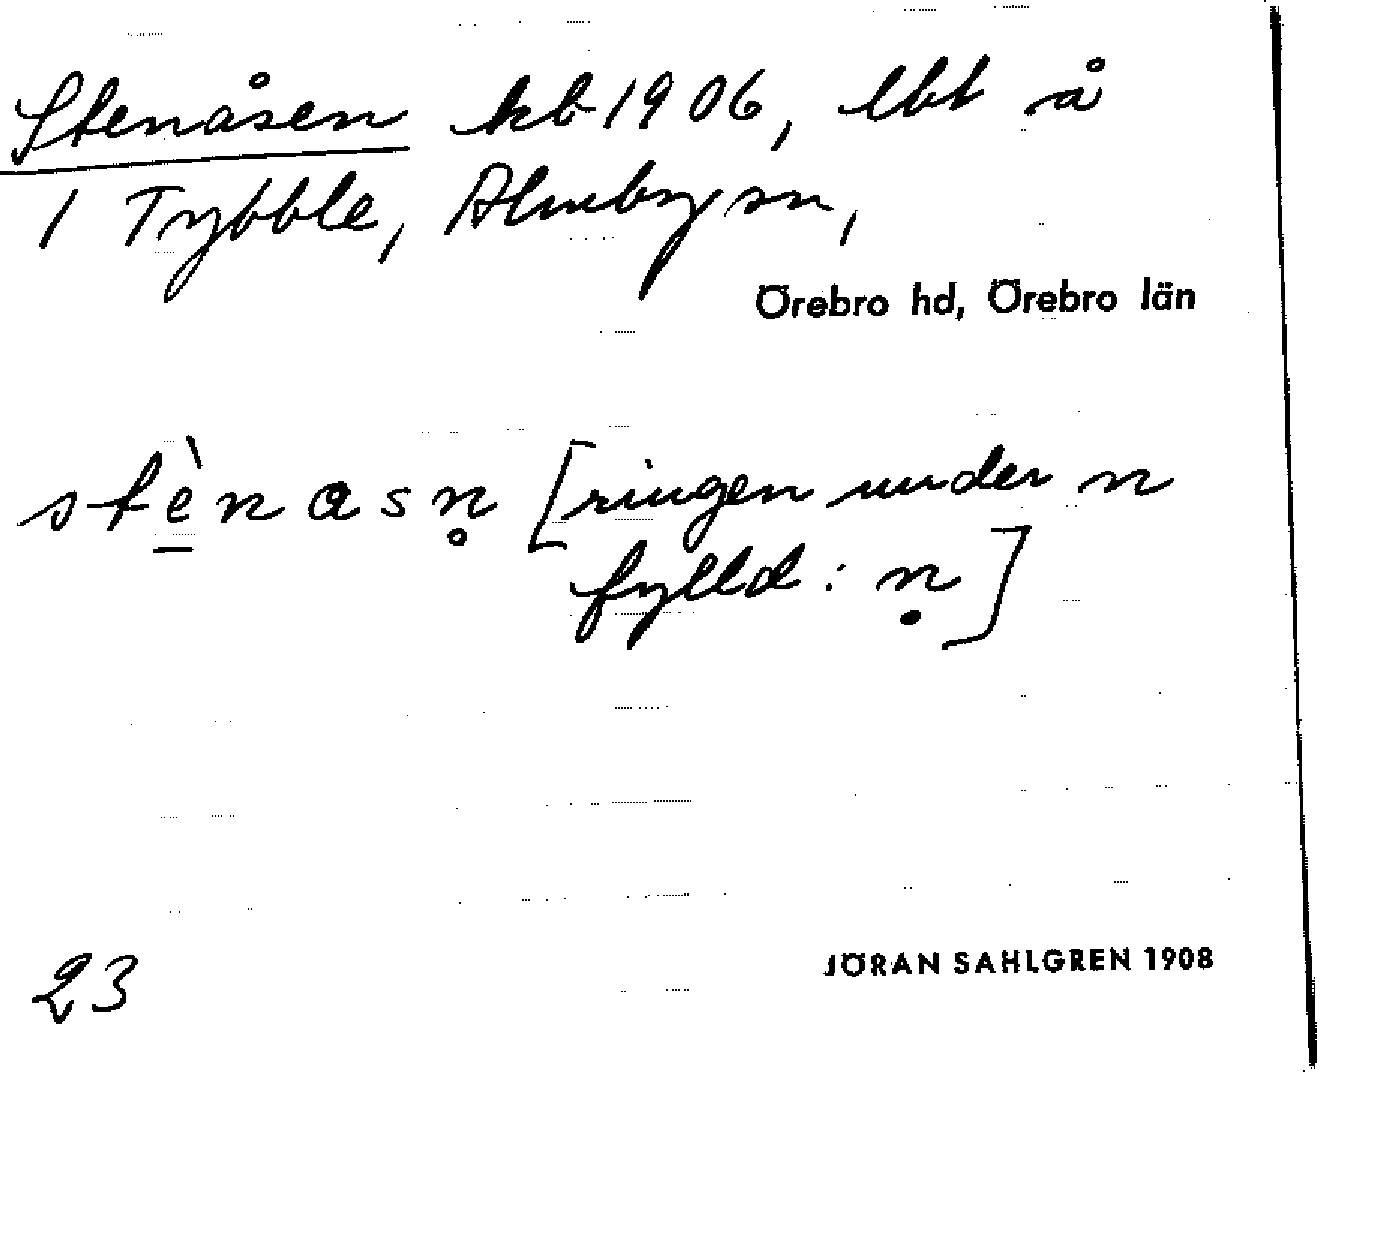 Stenåsen kb 1906, lbt å
1 Tybble, Almby sn,
Örebro hd, Örebro län
stè̲nasn̥ [ringen under n
fylld: ṇ]
23
JÖRAN SAHLGREN 1908